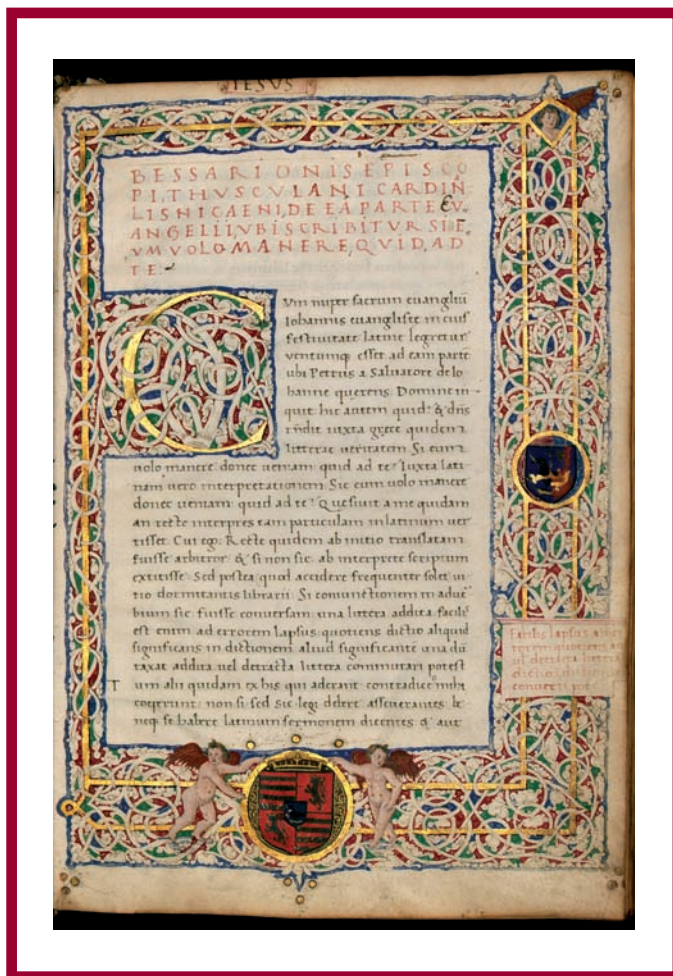 IESVS
BESSARIONIS EPISCO
PI, THVSCVLANI CARDIN̄
LIS NICAENI, DE EA PARTE EV.
ANGELII, VBI SCRIBITVR SI E
VM VOLO MANERE, QVID, AD
TE.
CVm nuper sacrum euangliū
Iohannis euangliste in eius
festiuitate latine legretur
ventumq esset ad eam partē
ubi Petrus a Saluatore de Io
hanne querens. Domine in
quit hic autem quid? & dn̄s
rn̄dit iuxta grece quidem
litterae ueritatem Si eum
uolo manere donec ueniam quid ad te? Iuxta lati
nam uero interpretationem Sic eum uolo manere
donec ueniam: quid ad te? Quesiuit a me quidam
an recte interpres eam particulam in latinum uer
tisset. Cui ego: Recte quidem ab initio translatam
fuisse arbitror & si non sic ab interprete scriptum
extitisse Sed postea quod accidere frequenter solet ui
tio dormitantis librarii Si coniunctionem in aduer
bium sic fuisse conuersam una littera addita facilis
est enim ad errorem lapsus quotiens dictio aliquid
significans in dictionem aliud significantē una dū
taxat addita uel detracta littera commutari potest
T um alii quidam ex his qui aderant contradice mihi
coeperunt: non si sed sic legi debere asseuerantes
neq se habere latinum sermonem dicentes & aut
Facilis lapsus ad er
rorem quotiens
uel detracta littera
dictio i dictionē
conuerti pōt